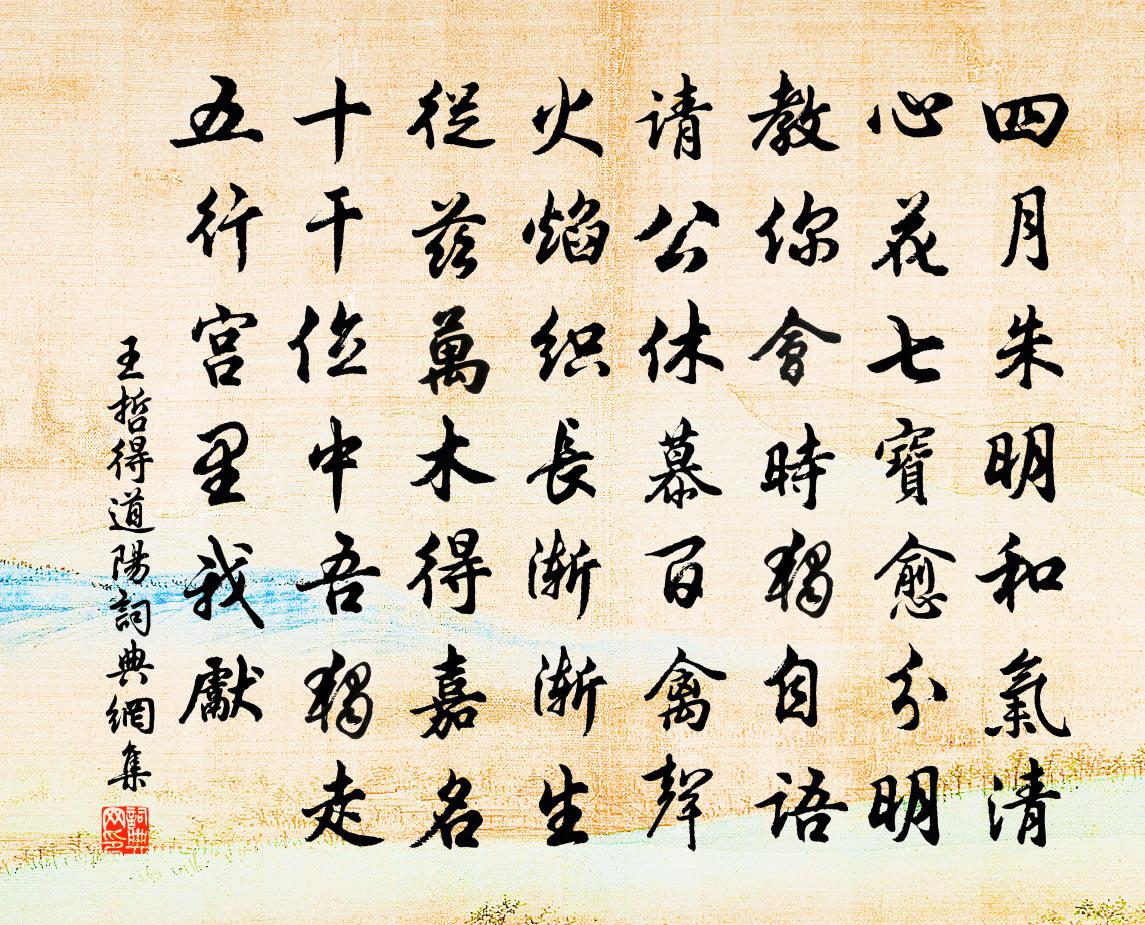 四月朱明和氣清
心花七寶愈分明
教你會時獨自語
请公休慕百禽聲
火焰织長渐渐生
從茲萬木得嘉名
十干位中吾獨走
五行宫里我獻
王哲得道陽詞典網集